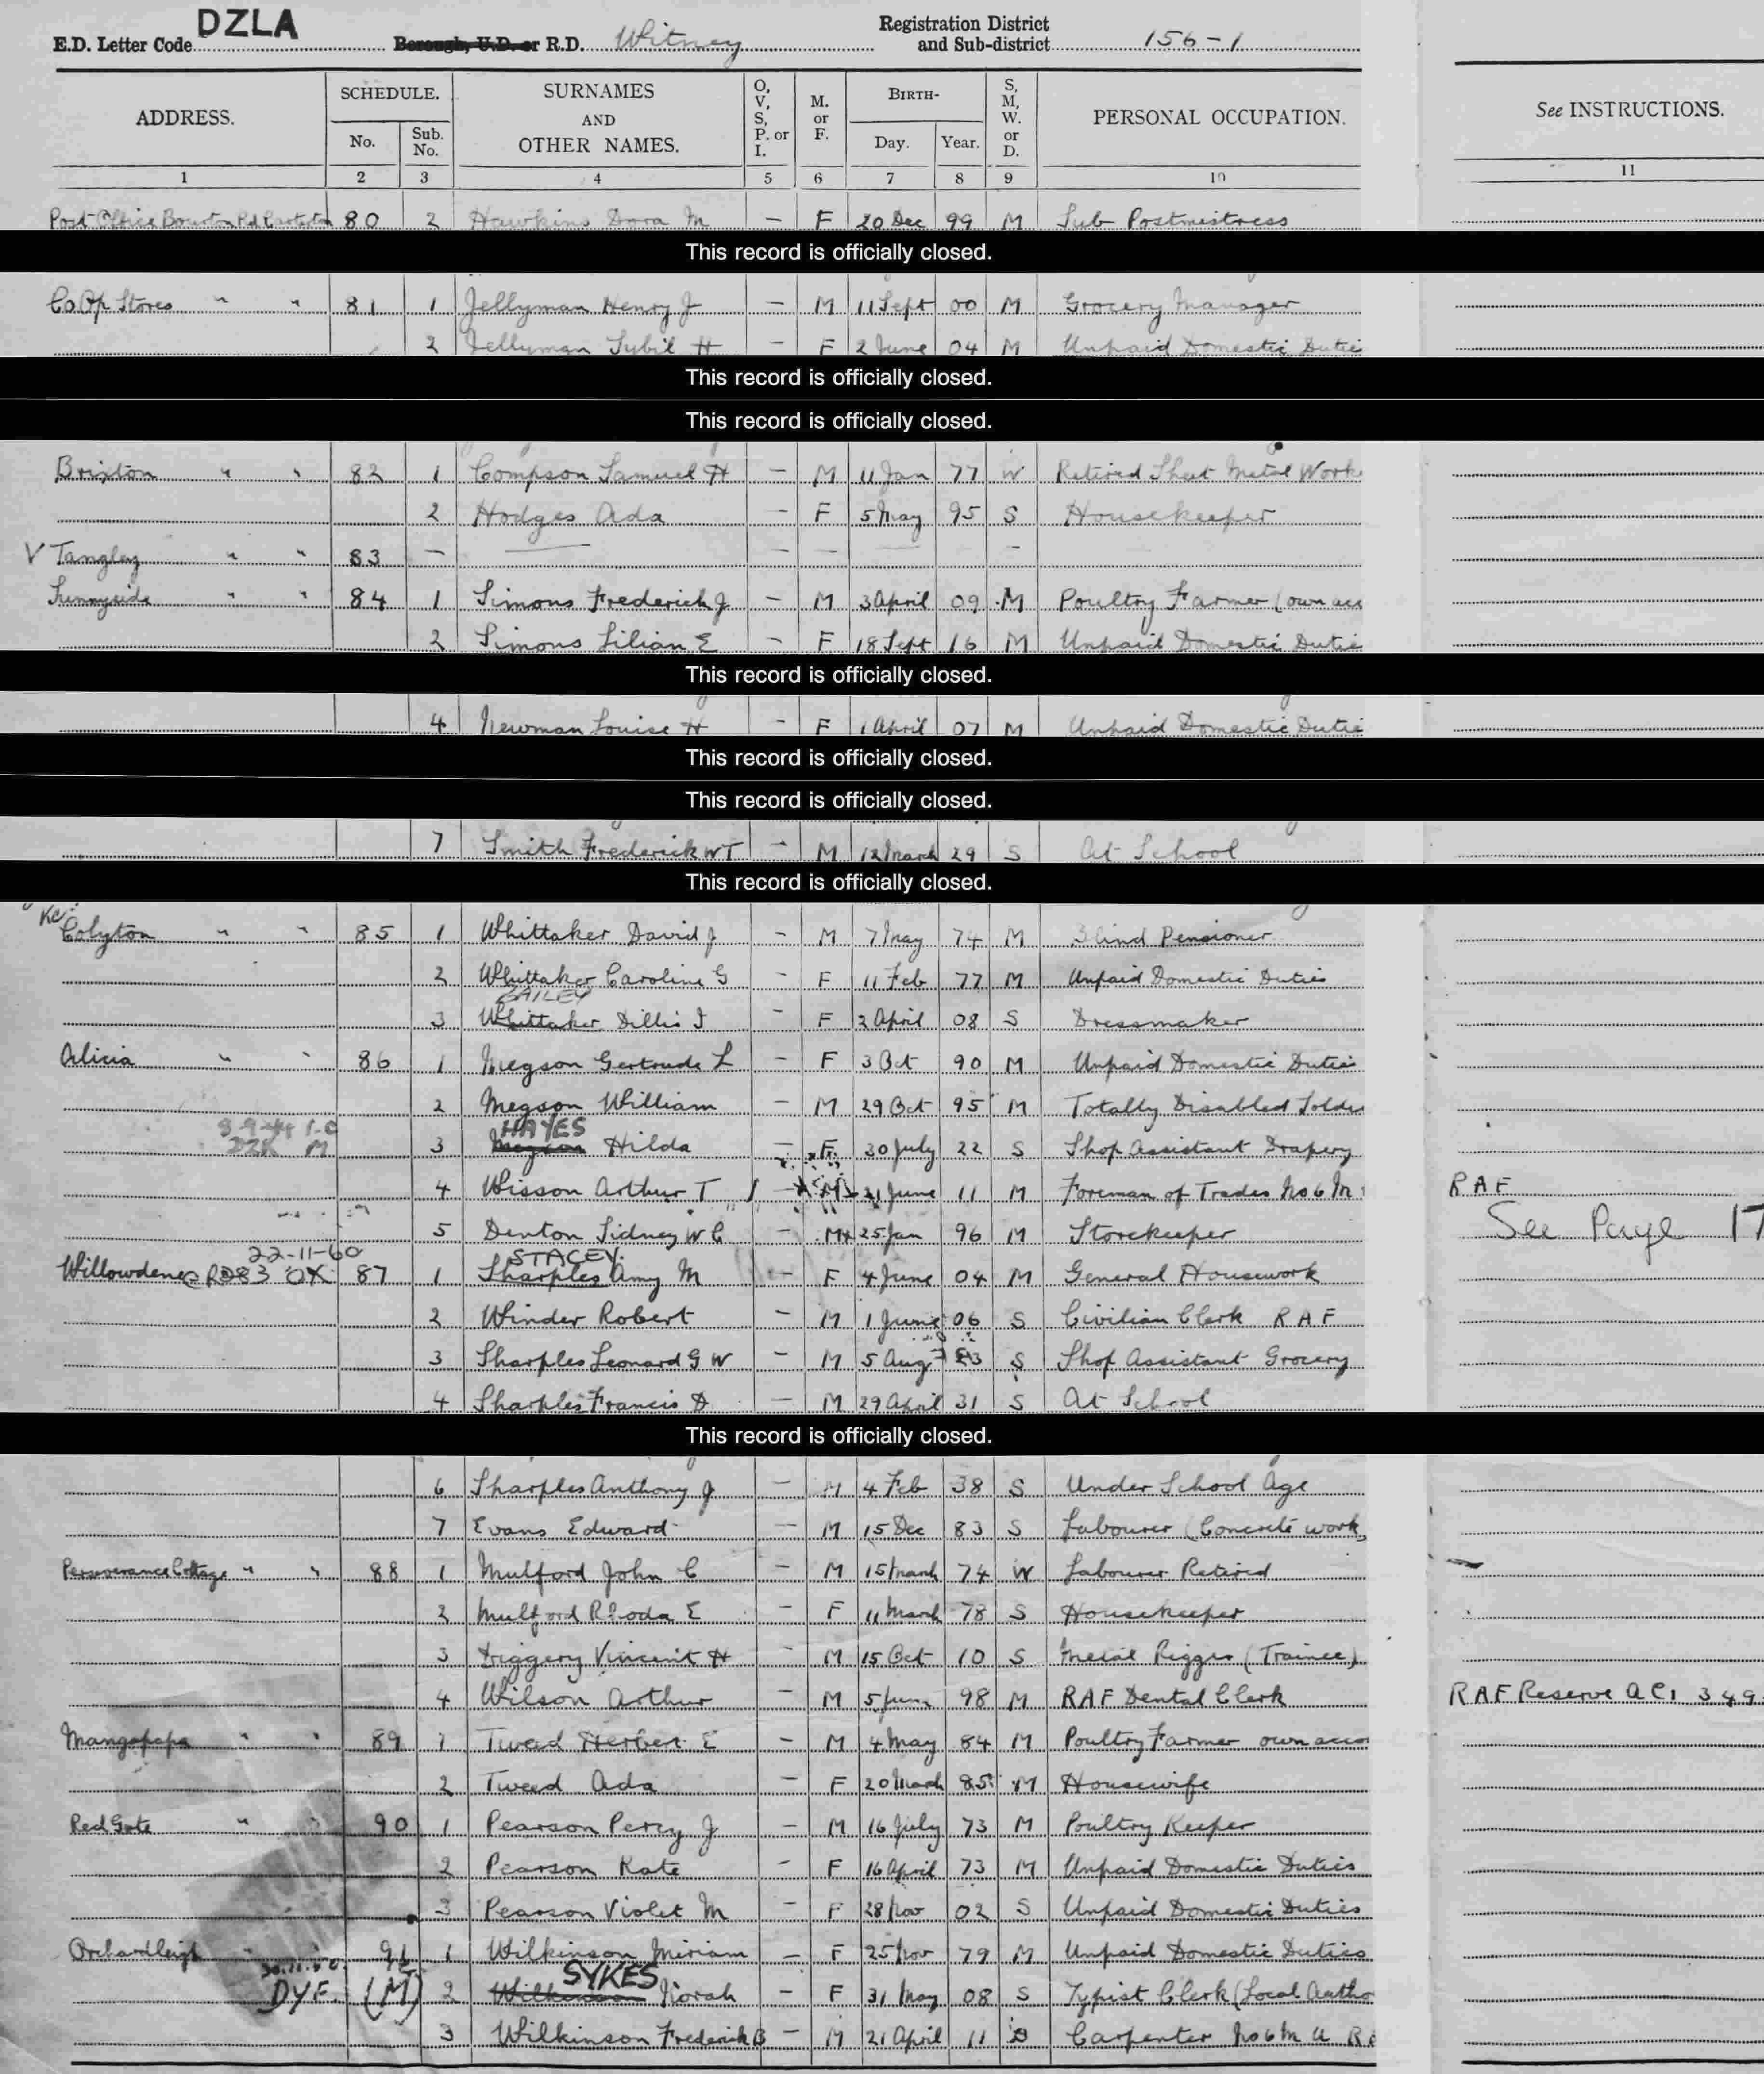 DZLA
E.D. Letter Code Borough, U.D. or R.D. Witney Registration District and Sub-district 156-1
ADDRESS. SCHEDULE. No. Sub. No. SURNAMES AND OTHER NAMES. O, V, S, P. or I. M. or F. BIRTH- Day. Year. S, M, W. or D. PERSONAL OCCUPATION. See INSTRUCTIONS.
1 2 3 4 5 6 7 8 9 10 11
Post Office Bourton Rd 80 2 Hawkins Dora M – F 20 Dec 99 M Sub Postmistress
This record is officially closed.
Co Op Stores " " 81 1 Jellyman Henry J – M 11 Sept 00 M Grocery Manager
2 Jellyman Sybil H – F 2 June 04 M Unpaid Domestic Dutie
This record is officially closed.
This record is officially closed.
Brixton " " 82 1 Compson Samuel H – M 11 Jan 77 W Retired Sheet Metal Work
2 Hodges Ada – F 5 May 95 S Housekeeper
V Tangley " " 83 – – – – –
Sunnyside " " 84 1 Simons Frederick J – M 3 April 09 M Poultry Farmer (own acc
2 Simons Lilian E – F 18 Sept 16 M Unpaid Domestic Dutie
This record is officially closed.
4 Newman Louise H – F 1 April 07 M Unpaid Domestic Dutie
This record is officially closed.
This record is officially closed.
7 Smith Frederick W T – M 12 March 29 S At School
This record is officially closed.
Colyton " " 85 1 Whittaker David J – M 7 May 74 M Blind Pensioner
2 Whittaker Caroline G – F 11 Feb 77 M Unpaid Domestic Duties
BAILEY
3 Whittaker Dillis I – F 2 April 08 S Dressmaker
Alicia " " 86 1 Megson Gertrude L – F 3 Oct 90 M Unpaid Domestic Duties
2 Megson William – M 29 Oct 95 M Totally Disabled Soldie
HAYES
3 Megson Hilda – F 30 July 22 S Shop Assistant Drapery
4 Wisson Arthur T – M 21 June 11 M Foreman of Trades No 6 M RAF
5 Denton Sidney W C – M 25 Jan 96 M Storekeeper See Page 17
22-11-60 STACEY.
Willowdene 87 1 Sharples Amy M – F 4 June 04 M General Housework
2 Winder Robert – M 1 June 06 S Civilian Clerk RAF
3 Sharples Leonard G W – M 5 Aug 23 S Shop Assistant Grocery
4 Sharples Francis D – M 29 April 31 S At School
This record is officially closed.
6 Sharples Anthony J – M 4 Feb 38 S Under School Age
7 Evans Edward – M 15 Dec 83 S Labourer (Concrete work
Perseverance Cottage " " 88 1 Mulford John C – M 15 March 74 W Labourer Retired
2 Mulford Rhoda E – F 11 March 78 S Housekeeper
3 Diggery Vincent H – M 15 Oct 10 S Metal Rigger (Trainee)
4 Wilson Arthur – M 5 June 98 M RAF Dental Clerk RAF Reserve AC1 349
Mangapapa " " 89 1 Tweed Herbert E – M 4 May 84 M Poultry Farmer own acco
2 Tweed Ada – F 20 March 85 M Housewife
Red Gate " " 90 1 Pearson Percy J – M 16 July 73 M Poultry Keeper
2 Pearson Kate – F 16 April 73 M Unpaid Domestic Duties
3 Pearson Violet M – F 28 Nov 02 S Unpaid Domestic Duties
Orchardleigh " " 91 1 Wilkinson Miriam – F 25 Nov 79 M Unpaid Domestic Duties
SYKES
DYF. (M) 2 Wilkinson Norah – F 31 May 08 S Typist Clerk (Local Autho
3 Wilkinson Frederick B – M 21 April 11 Carpenter No 6 M U RA